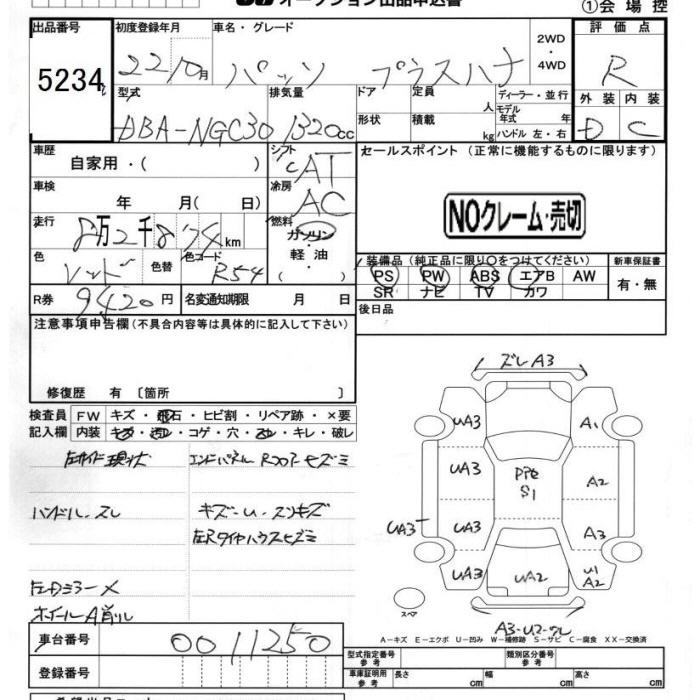 オークション出品申込書
①会場控
出品番号 初度登録年月 車名・グレード 2WD・4WD 評価点
5234 22 10月 パッソ プラスハナ R
型式 排気量 ドア 定員 人 ディーラー・並行 外装 内装
DBA-NGC30 1320cc 形状 積載 kg モデル年式 年 ハンドル 左・右 D C
車歴 自家用・( ) シフト CAT セールスポイント (正常に機能するものに限ります)
車検 年 月( 日) 冷房 AC
NOクレーム・売切
走行 8万2千8 74km 燃料 ガソリン・軽油・( )
色 レッド 色替 色コード R54
装備品(純正品に限り○をつけてください) 新車保証書
PS PW ABS エアB AW 有・無
SR ナビ TV カワ
R券 9420円 名変通知期限 月 日
後日品
注意事項申告欄(不具合内容等は具体的に記入して下さい)
修復歴 有 〔箇所 〕
検査員 FW キズ・飛石・ヒビ割・リペア跡・×要
記入欄 内装 キズ・コゲ・穴・キレ・破レ
現状 エンドパネル Rフロア ヒズミ
ハンドル スレ キズ-U-スリキズ
左Rタイヤハウスヒズミ
左Dミラー X
ホイールA 削リ
ズレA3
UA3 A1
UA3 A2
S1
UA3 UA3 A3
UA3 UA2 U1 A2
スペア
A-キズ E-エクボ U-凹み W-補修跡 S-サビ C-腐食 XX-交換済
車台番号 0011250
型式指定番号 参考 類別区分番号 参考
登録番号
車庫証明用 参考 長さ cm 幅 cm 高さ cm